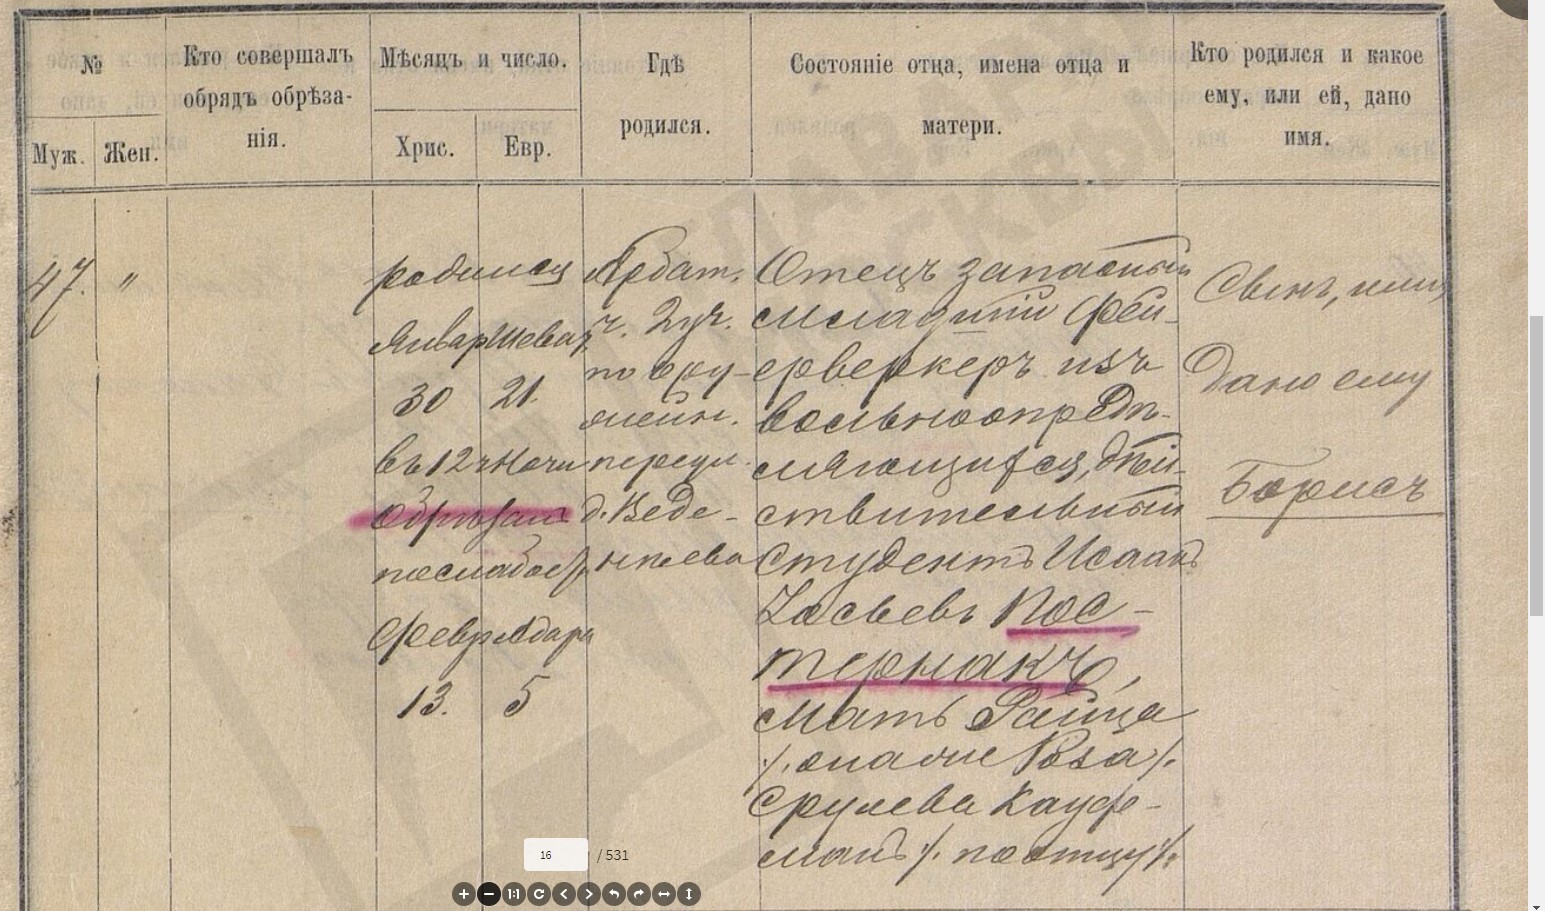 №
Муж.
Жен.
Кто совершалъ
обрядъ обрѣза-
нія.
Мѣсяцъ и число.
Хрис.
Евр.
Гдѣ
родился.
Состояніе отца, имена отца и
матери.
Кто родился и какое
ему, или ей, дано
имя.
47.
"
родился
Январ Шевал
30 21.
въ 12 ч Ночи
Обрѣзан
Февр Адара
13. 5
Арбат.
ч. 2 уч.
по ору-
жейн.
переул.
д. Веде-
нѣева
Отецъ запасный
младшій фей-
ерверкеръ изъ
вольноопредѣ-
ляющихся, дѣй-
ствительный
студентъ Исаакъ
Іосьевъ Пос-
тернакъ,
мать Райца
/. она же Роза /.
Срулева Кауф-
манъ /. по отцу /.
Сынъ, имя
Дано ему
Борисъ
16 / 531
1:1